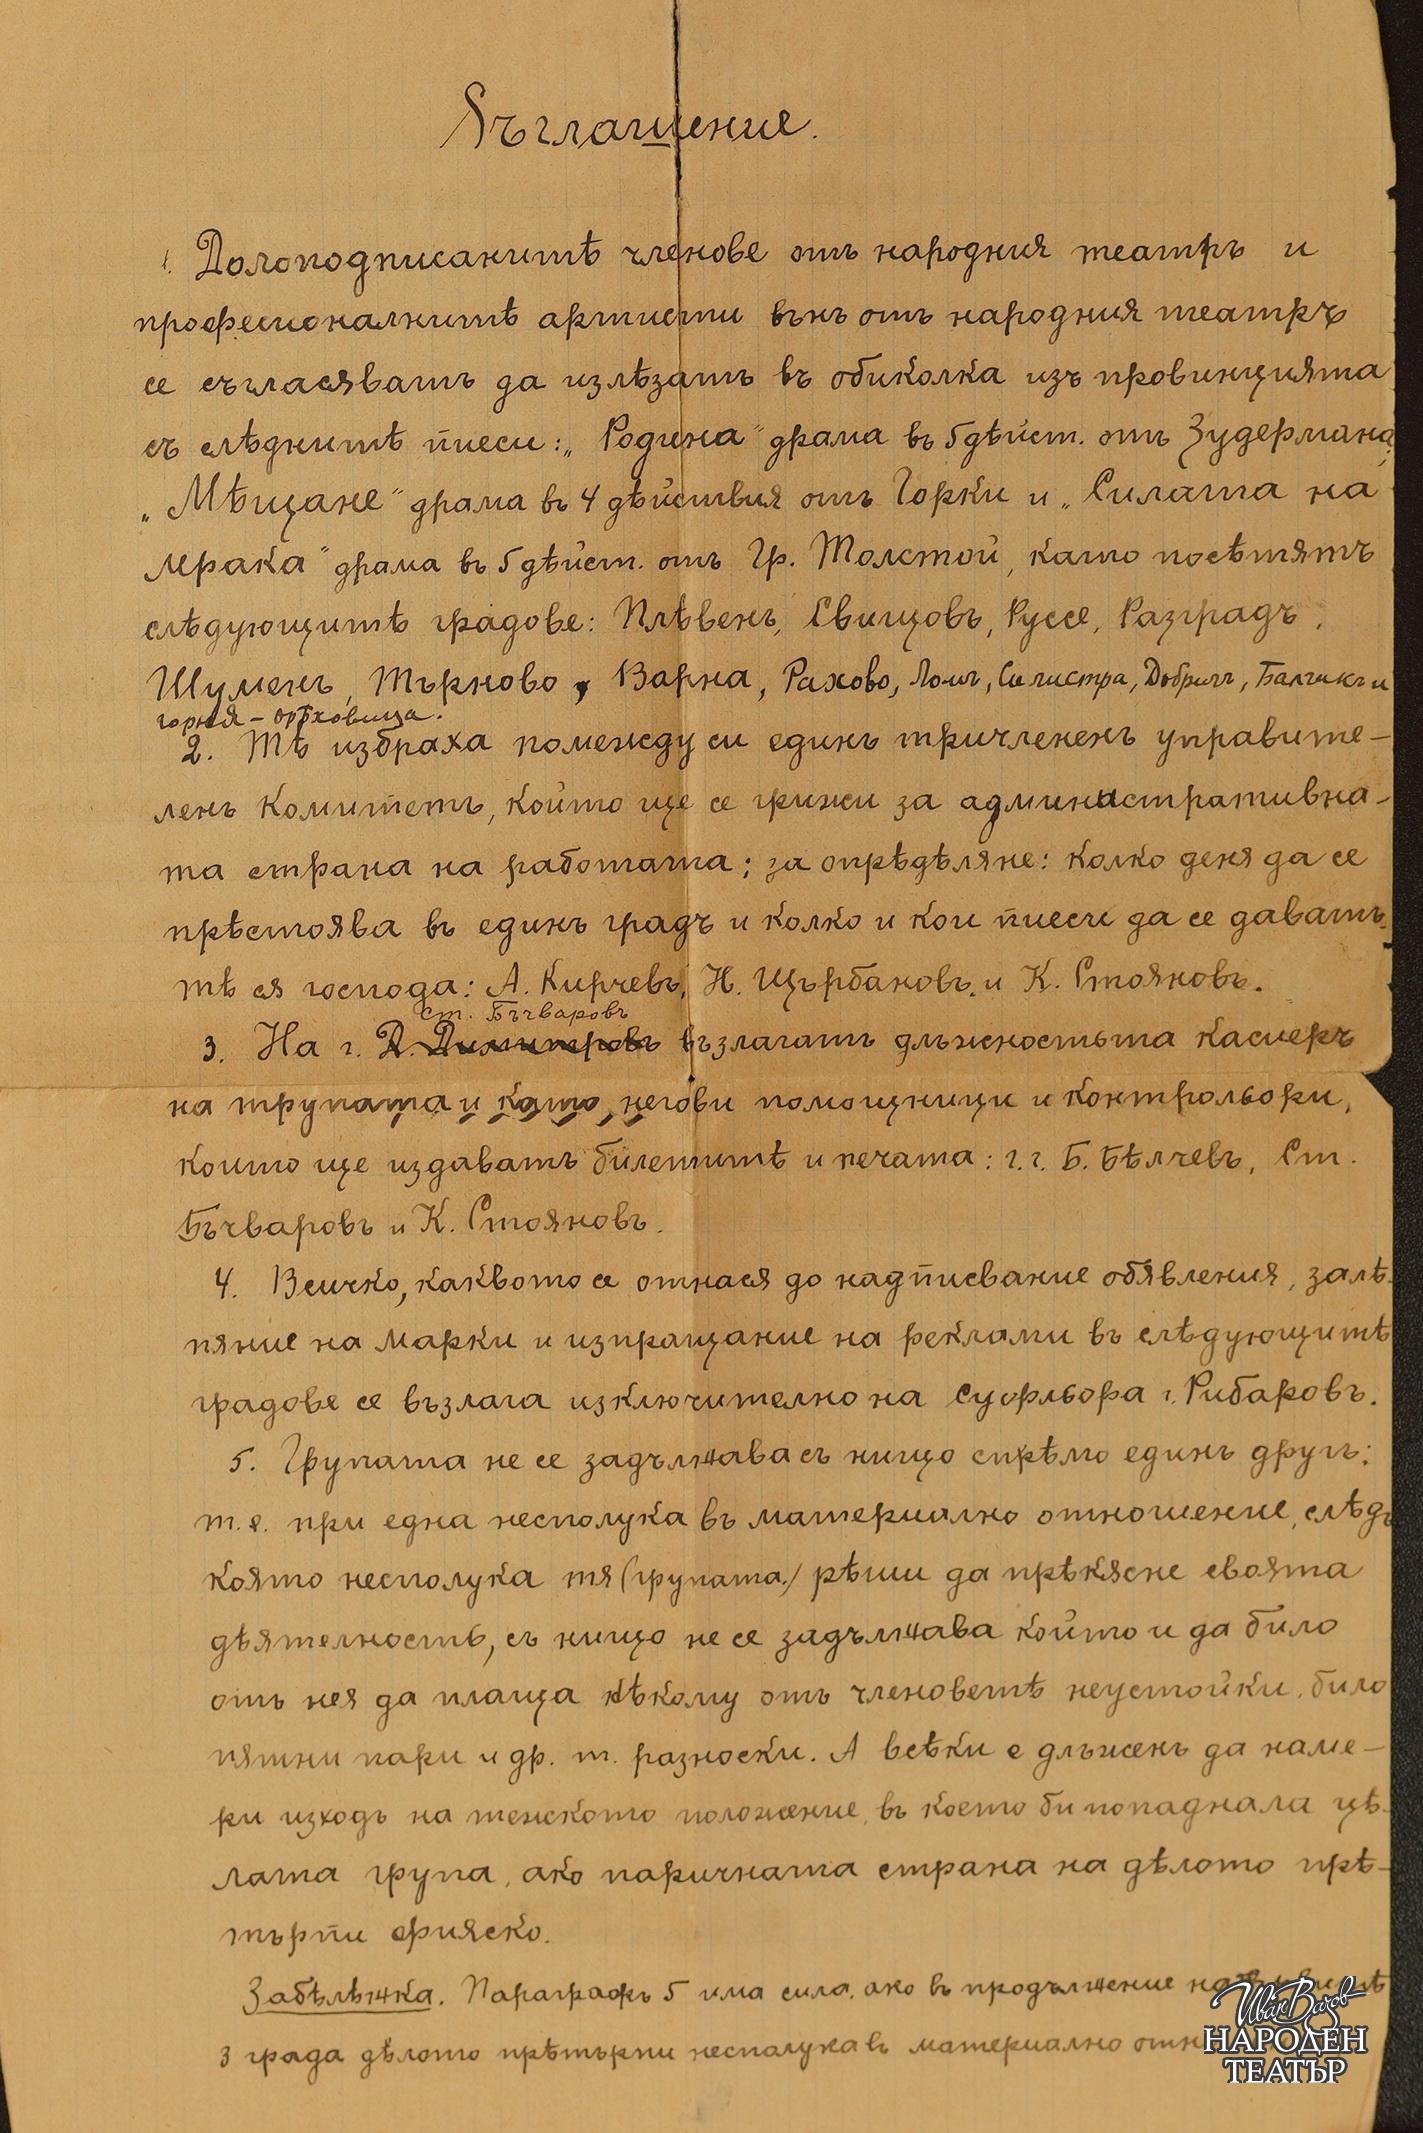 Съглашение.
1. Долоподписанитѣ членове отъ народния театръ и
професионалнитѣ артисти вънъ отъ народния театръ
се съгласяватъ да излѣзатъ въ обиколка изъ провинцията
съ слѣднитѣ пиеси: „Родина“ драма въ 5 дѣйст. отъ Зудермана,
„Мѣщане“ драма въ 4 дѣйствия отъ Горки и „Силата на
мрака“ драма въ 5 дѣйст. отъ Гр. Толстой, като посѣтятъ
слѣдующитѣ градове: Плѣвенъ, Свищовъ, Руссе, Разградъ,
Шуменъ, Търново, Варна, Рахово, Ломъ, Силистра, Добричъ, Балчикъ и
горня-орѣховица.
2. Тѣ избраха помежду си единъ тричлененъ управите-
ленъ комитетъ, който ще се грижи за административна-
та страна на работата; за опрѣдѣляне: колко деня да се
прѣстоява въ единъ градъ и колко и кои пиеси да се даватъ.
тѣ ся господа: А. Кирчевъ, Н. Щърбановъ и К. Стояновъ.
Ст. Бъчваровъ
3. На г. Д. Димитровъ възлагатъ длъжностьта касиеръ
на трупата и като негови помощници и контрольори,
които ще издаватъ билетитѣ и печата: г. г. Б. Бѣлчевъ, Ст.
Бъчваровъ и К. Стояновъ.
4. Всичко, каквото се отнася до надписвание обявления, залѣ-
пяние на марки и изпращание на реклами въ слѣдующитѣ
градове се възлага изключително на суфльора г. Рибаровъ.
5. Групата не се задължава съ нищо спрѣмо единъ другъ;
т. е. при една несполука въ материално отношение, слѣдъ
която несполука тя (групата) рѣши да прѣкясне своята
дѣятелность, съ нищо не се задължава който и да било
отъ нея да плаща нѣкому отъ членоветѣ неустойки, било
пятни пари и др. т. разноски. А всѣки е длъженъ да наме-
ри изходъ на тежкото положение, въ което би попаднала цѣ-
лата група, ако паричната страна на дѣлото прѣ-
търпи фияско.
Забѣлѣжка. Параграфъ 5 има сила, ако въ продължение на
3 града дѣлото прѣтърпи несполука въ материално
Иван Вазов
НАРОДЕН
ТЕАТЪР